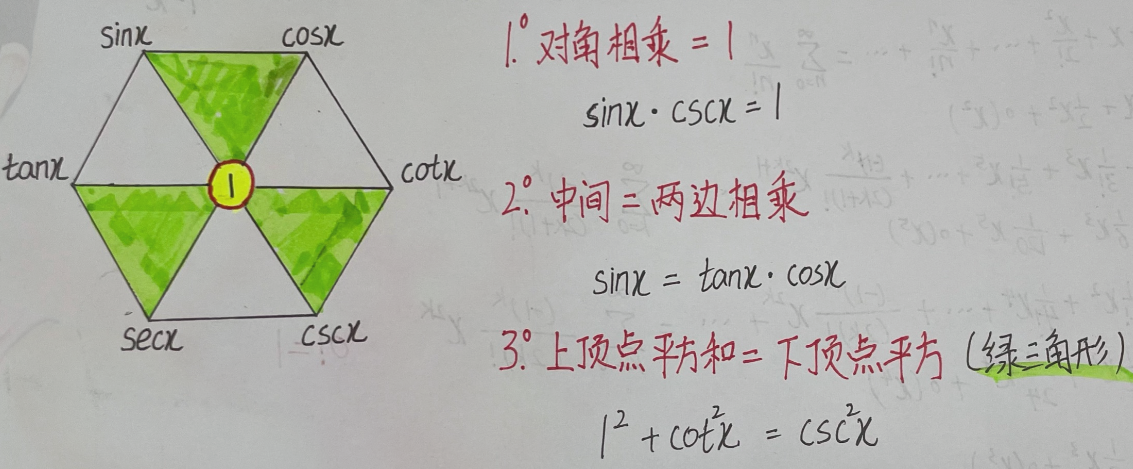 sinx
cosx
tanx
1
cotx
secx
cscx
1° 对角相乘 = 1
sinx · cscx = 1
2° 中间 = 两边相乘
sinx = tanx · cosx
3° 上顶点平方和 = 下顶点平方 (绿三角形)
1² + cot²x = csc²x